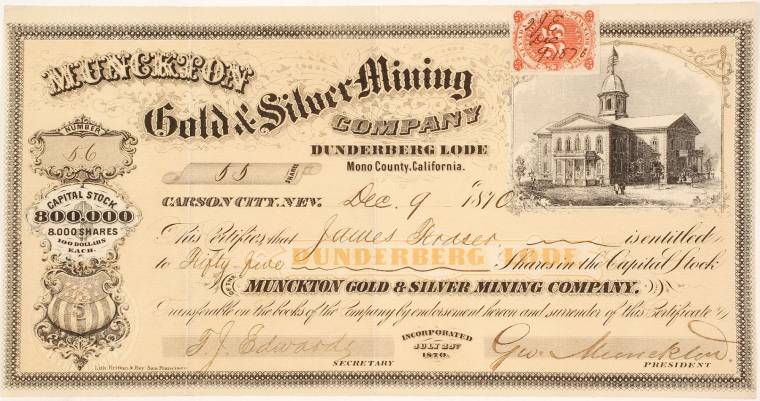 MUNCKTON
Gold & Silver Mining
COMPANY
DUNDERBERG LODE
Mono County, California.
NUMBER
56
55 SHARES
CAPITAL STOCK
800,000
8.000 SHARES
100 DOLLARS
EACH.
25
CARSON CITY, NEV. Dec. 9 1870
This Certifies, that James Fraser is entitled
to Fifty five Shares in the Capital Stock
DUNDERBERG LODE
MUNCKTON GOLD & SILVER MINING COMPANY,
Transferable on the books of the Company by endorsement hereon and surrender of this Certificate
T.J. Edwards
SECRETARY
INCORPORATED
JULY 23D
1870.
Geo. Munckton
PRESIDENT
Lith. Britton & Rey San Francisco